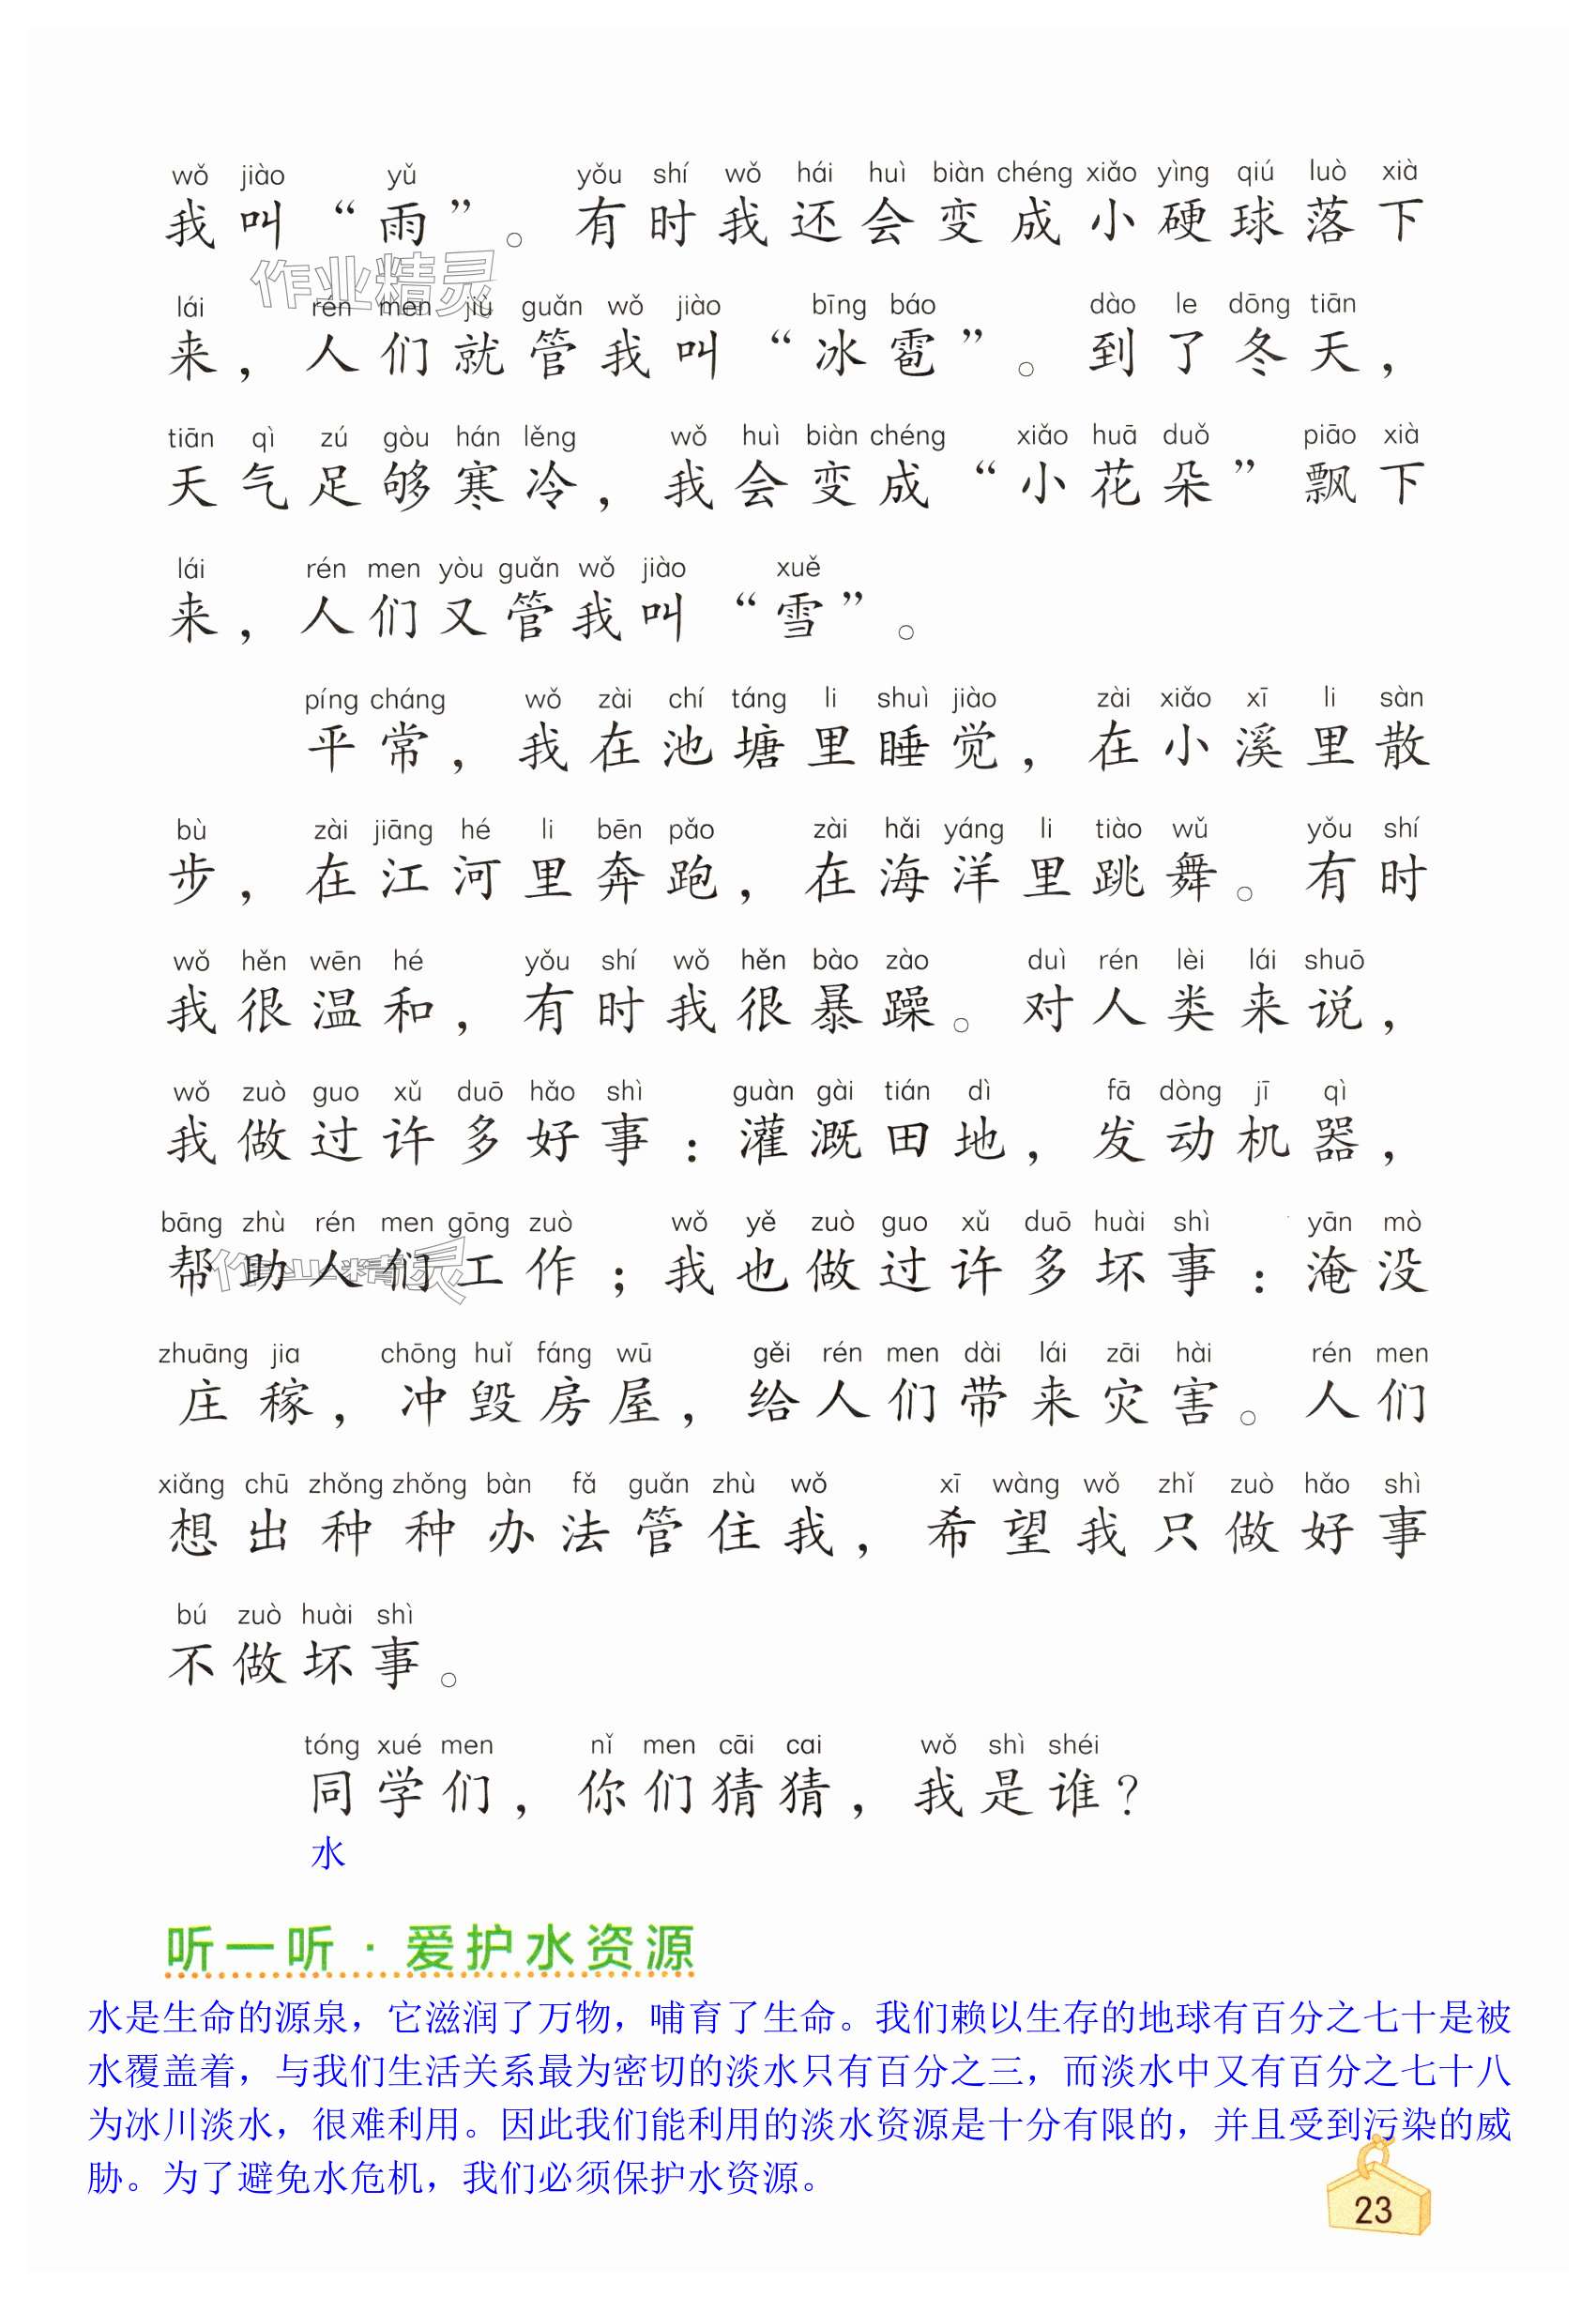 wǒ jiào yǔ yǒu shí wǒ hái huì biàn chéng xiǎo yìng qiú luò xià
我叫“雨”。有时我还会变成小硬球落下
作业精灵
lái rén men jiù guǎn wǒ jiào bīng báo dào le dōng tiān
来，人们就管我叫“冰雹”。到了冬天，
tiān qì zú gòu hán lěng wǒ huì biàn chéng xiǎo huā duǒ piāo xià
天气足够寒冷，我会变成“小花朵”飘下
lái rén men yòu guǎn wǒ jiào xuě
来，人们又管我叫“雪”。
píng cháng wǒ zài chí táng li shuì jiào zài xiǎo xī li sàn
平常，我在池塘里睡觉，在小溪里散
bù zài jiāng hé li bēn pǎo zài hǎi yáng li tiào wǔ yǒu shí
步，在江河里奔跑，在海洋里跳舞。有时
wǒ hěn wēn hé yǒu shí wǒ hěn bào zào duì rén lèi lái shuō
我很温和，有时我很暴躁。对人类来说，
wǒ zuò guo xǔ duō hǎo shì guàn gài tián dì fā dòng jī qì
我做过许多好事：灌溉田地，发动机器，
bāng zhù rén men gōng zuò wǒ yě zuò guo xǔ duō huài shì yān mò
帮助人们工作；我也做过许多坏事：淹没
作业精灵
zhuāng jia chōng huǐ fáng wū gěi rén men dài lái zāi hài rén men
庄稼，冲毁房屋，给人们带来灾害。人们
xiǎng chū zhǒng zhǒng bàn fǎ guǎn zhù wǒ xī wàng wǒ zhǐ zuò hǎo shì
想出种种办法管住我，希望我只做好事
bú zuò huài shì
不做坏事。
tóng xué men nǐ men cāi cai wǒ shì shéi
同学们，你们猜猜，我是谁？
水
听一听·爱护水资源
水是生命的源泉，它滋润了万物，哺育了生命。我们赖以生存的地球有百分之七十是被
水覆盖着，与我们生活关系最为密切的淡水只有百分之三，而淡水中又有百分之七十八
为冰川淡水，很难利用。因此我们能利用的淡水资源是十分有限的，并且受到污染的威
胁。为了避免水危机，我们必须保护水资源。
23